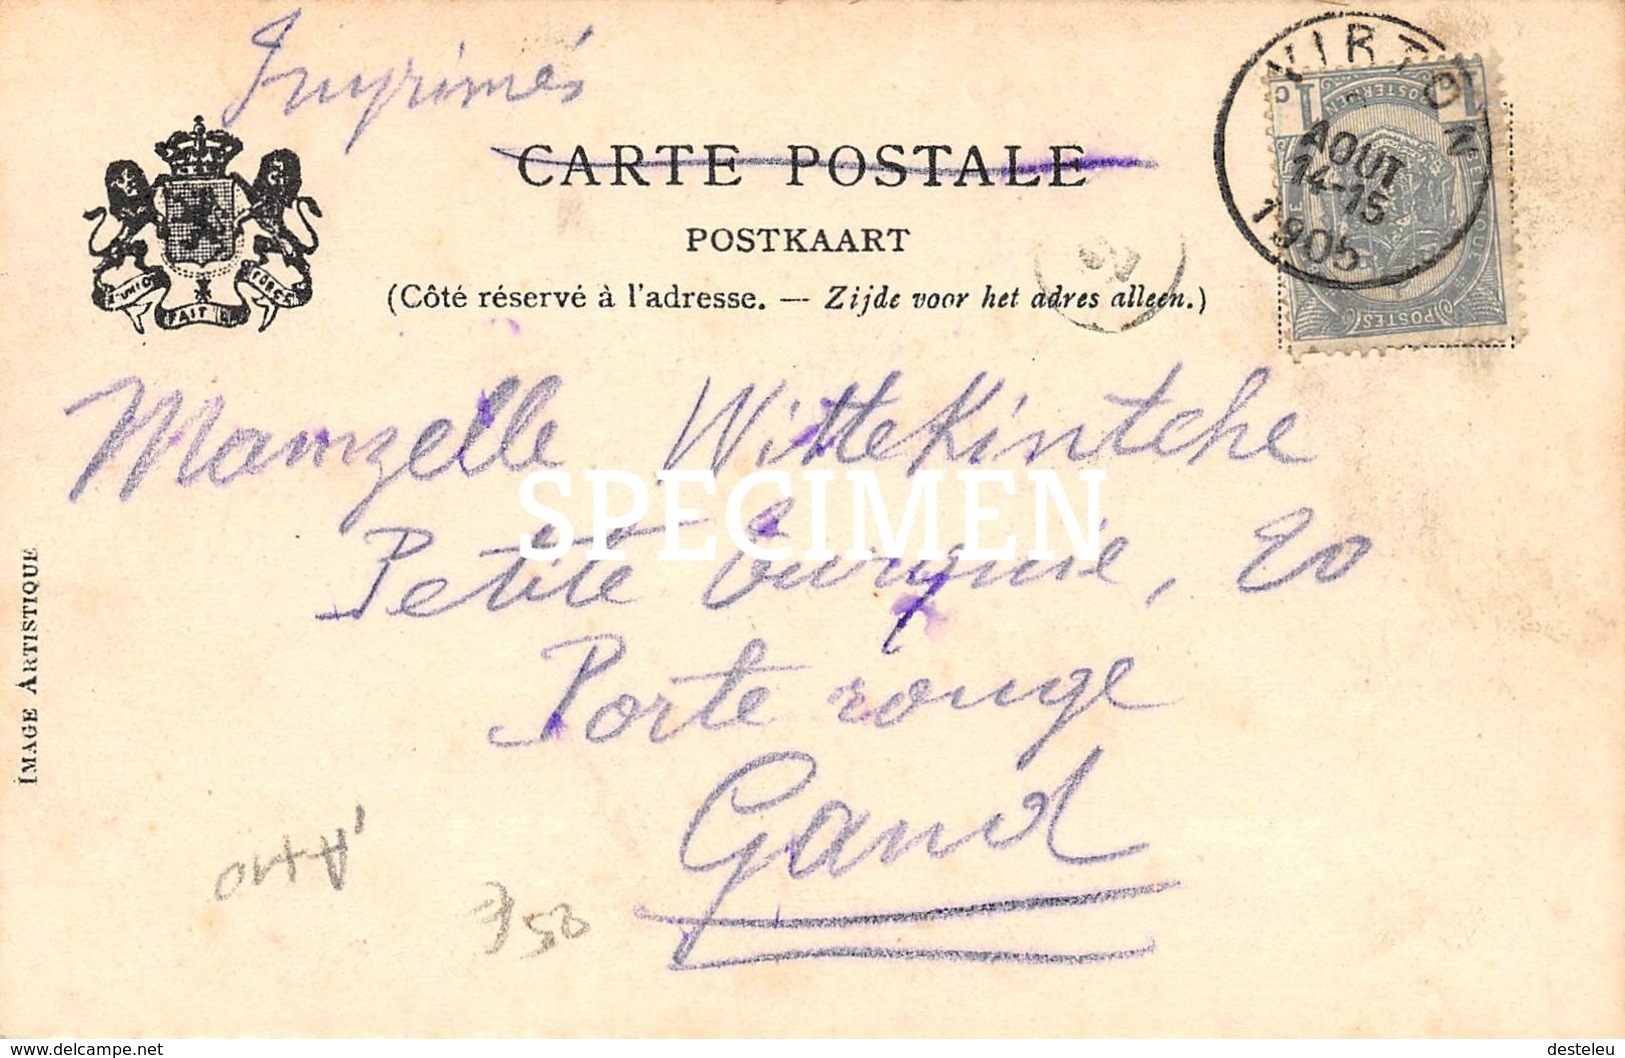 Imprimés
CARTE POSTALE
POSTKAART
(Côté réservé à l'adresse. — Zijde voor het adres alleen.)
L'UNION FAIT LA FORCE
VIRTON
AOUT
14-15
1905
POSTES
Mamzelle Wittekintche
SPECIMEN
Petite turquie, 20
Porte rouge
Gand
IMAGE ARTISTIQUE
delcampe.net
desteleu